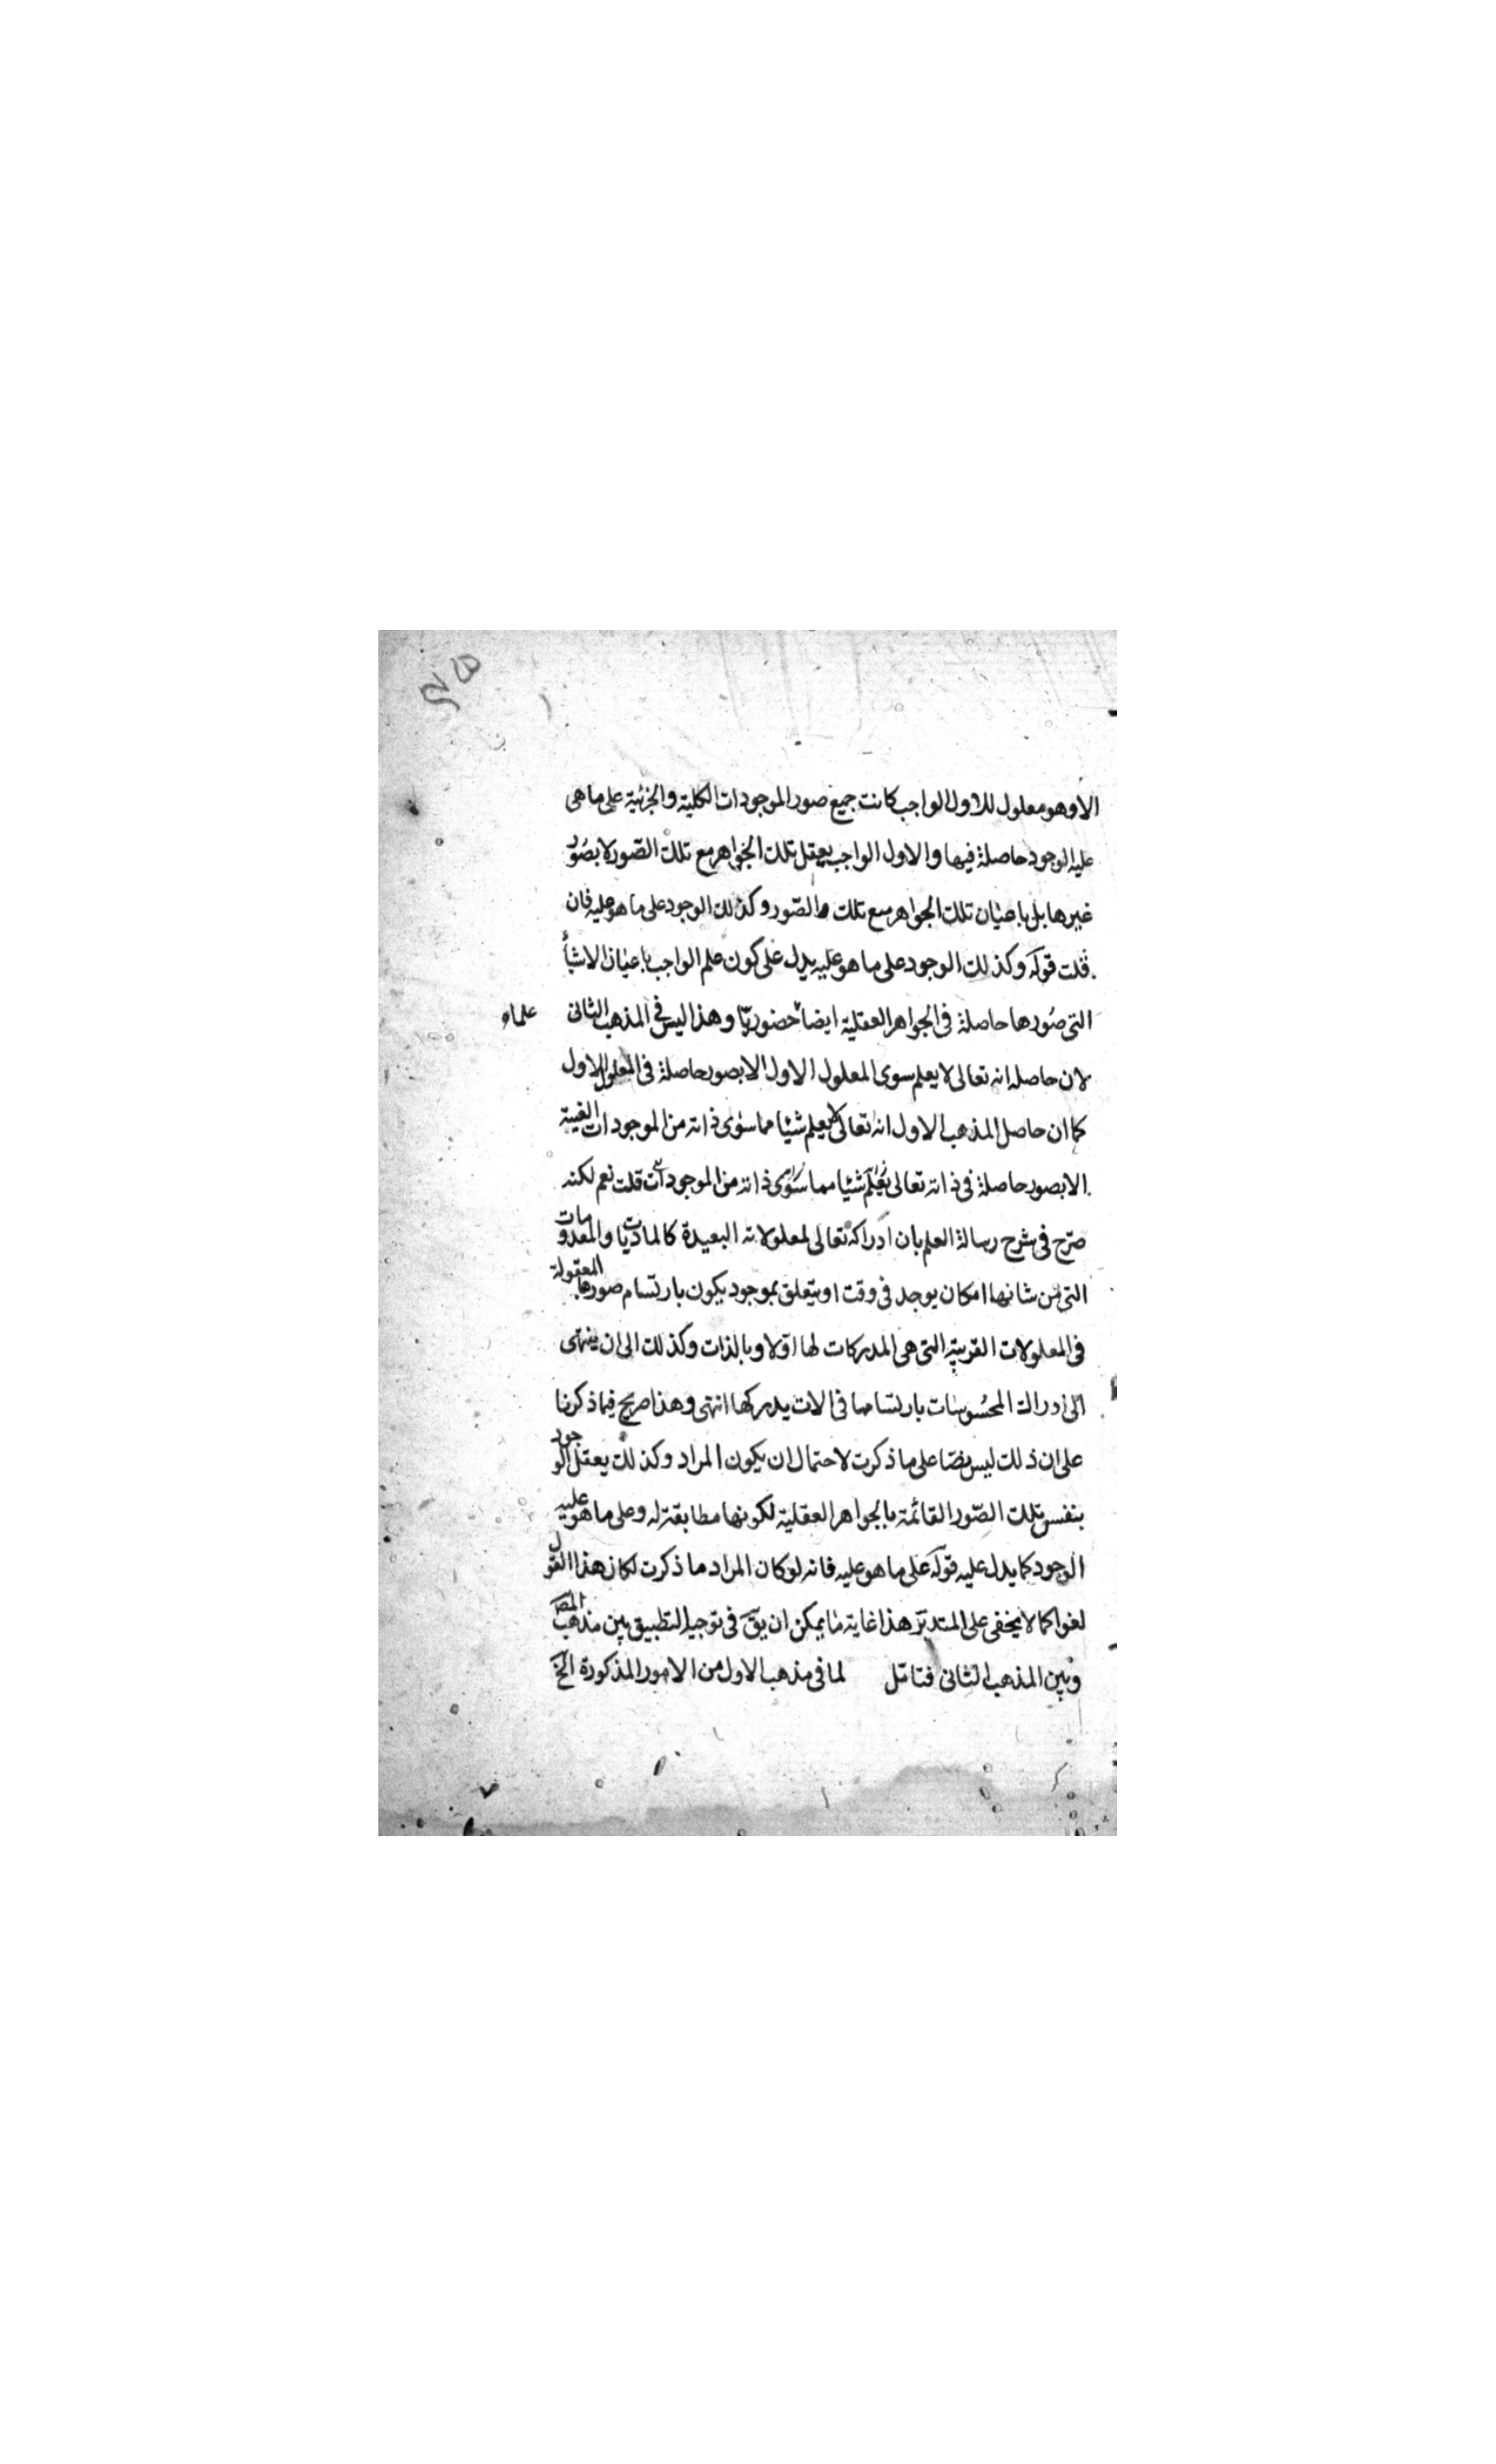 الا وهو معلول للاول الواجب كانت جميع صور الموجودات الكلية والجزئية على ما هى
عليه الوجود حاصلة فيها والاول الواجب يعقل تلك الجواهر مع تلك الصور لا بصور
غيرها بل باعيان تلك الجواهر مع تلك والصور وكذلك الوجود على ما هو عليه فان
قلت قوله وكذلك الوجود على ما هو عليه يدل على كون علم الواجب باعيان الاشيأ
التى صورها حاصلة فى الجواهر العقلية ايضا حضوريا وهذا ليس فى المذهب الثانى
علماء
لان حاصله انه تعالى لا يعلم سوى المعلول الاول الا بصور حاصلة فى المعلول الاول
كما ان حاصل المذهب الاول انه تعالى لا يعلم شيئا مما سوى ذاته من الموجودات
الا بصور حاصلة فى ذاته تعالى يعلم شيئا مما سوى ذاته من الموجودات قلت نعم لكنه
صرح فى شرح رسالة العلم بان ادراكه تعالى لمعلولاته البعيدة كالماديات والمعدومات
التى من شانها امكان يوجد فى وقت او يتعلق بموجود يكون بارتسام صورها المعقولة
فى المعلولات القريبة التى هى المدركات لها اولا وبالذات وكذلك الى ان ينتهى
الى ادراك المحسوسات بارتسامها فى الات يدركها انتهى وهذا صريح فيما ذكرنا
على ان ذلك ليس نصا على ما ذكرت لاحتمال ان يكون المراد وكذلك يعقل الوجود
بنفس تلك الصور القائمة بالجواهر العقلية لكونها مطابقة له وعلى ما هو عليه
الوجود كما يدل عليه قوله على ما هو عليه فانه لو كان المراد ما ذكرت لكان هذا القول
لغوا كما لا يخفى على المتدبر هذا غاية ما يمكن ان يق فى توجيه التطبيق بين مذهب المص
وبين المذهب الثانى فتامل لما فى مذهب الاول من الامور المذكورة الخ